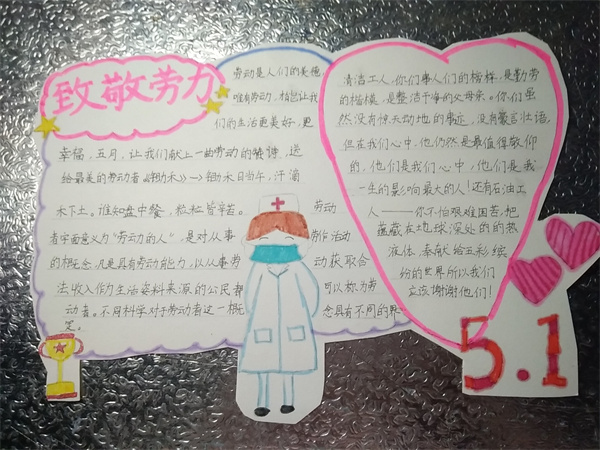 致敬劳力
劳动是人们的美德
唯有劳动，才能让我
们的生活更美好，更
幸福，五月，让我们献上一曲劳动的赞诗，送
给最美的劳动者《锄禾》一）锄禾日当午，汗滴
禾下土。谁知盘中餐，粒粒皆辛苦。 劳动
者字面意义为“劳动的人”，是对从事 劳作活动
的概念，凡是具有劳动能力，以从事劳 动获取合
法收入作为生活资料来源的公民都 可以称为劳
动者。不同科学对于劳动者这一概 念具有不同的界
定。
清洁工人，你们事人们的楷样，是勤劳
的楷模，是整洁干净的父母亲。你们虽
然没有惊天动地的事迹，没有豪言壮语，
但在我们心中，他仍然是最值得敬仰
的，他们是我们心中，他们是我
一生的影响最大的人！还有石油工
人——你不怕艰难困苦，把
蕴藏在地球深处的的热
液体，奉献给五彩缤
纷的世界所以我们
应该谢谢他们！
5.1